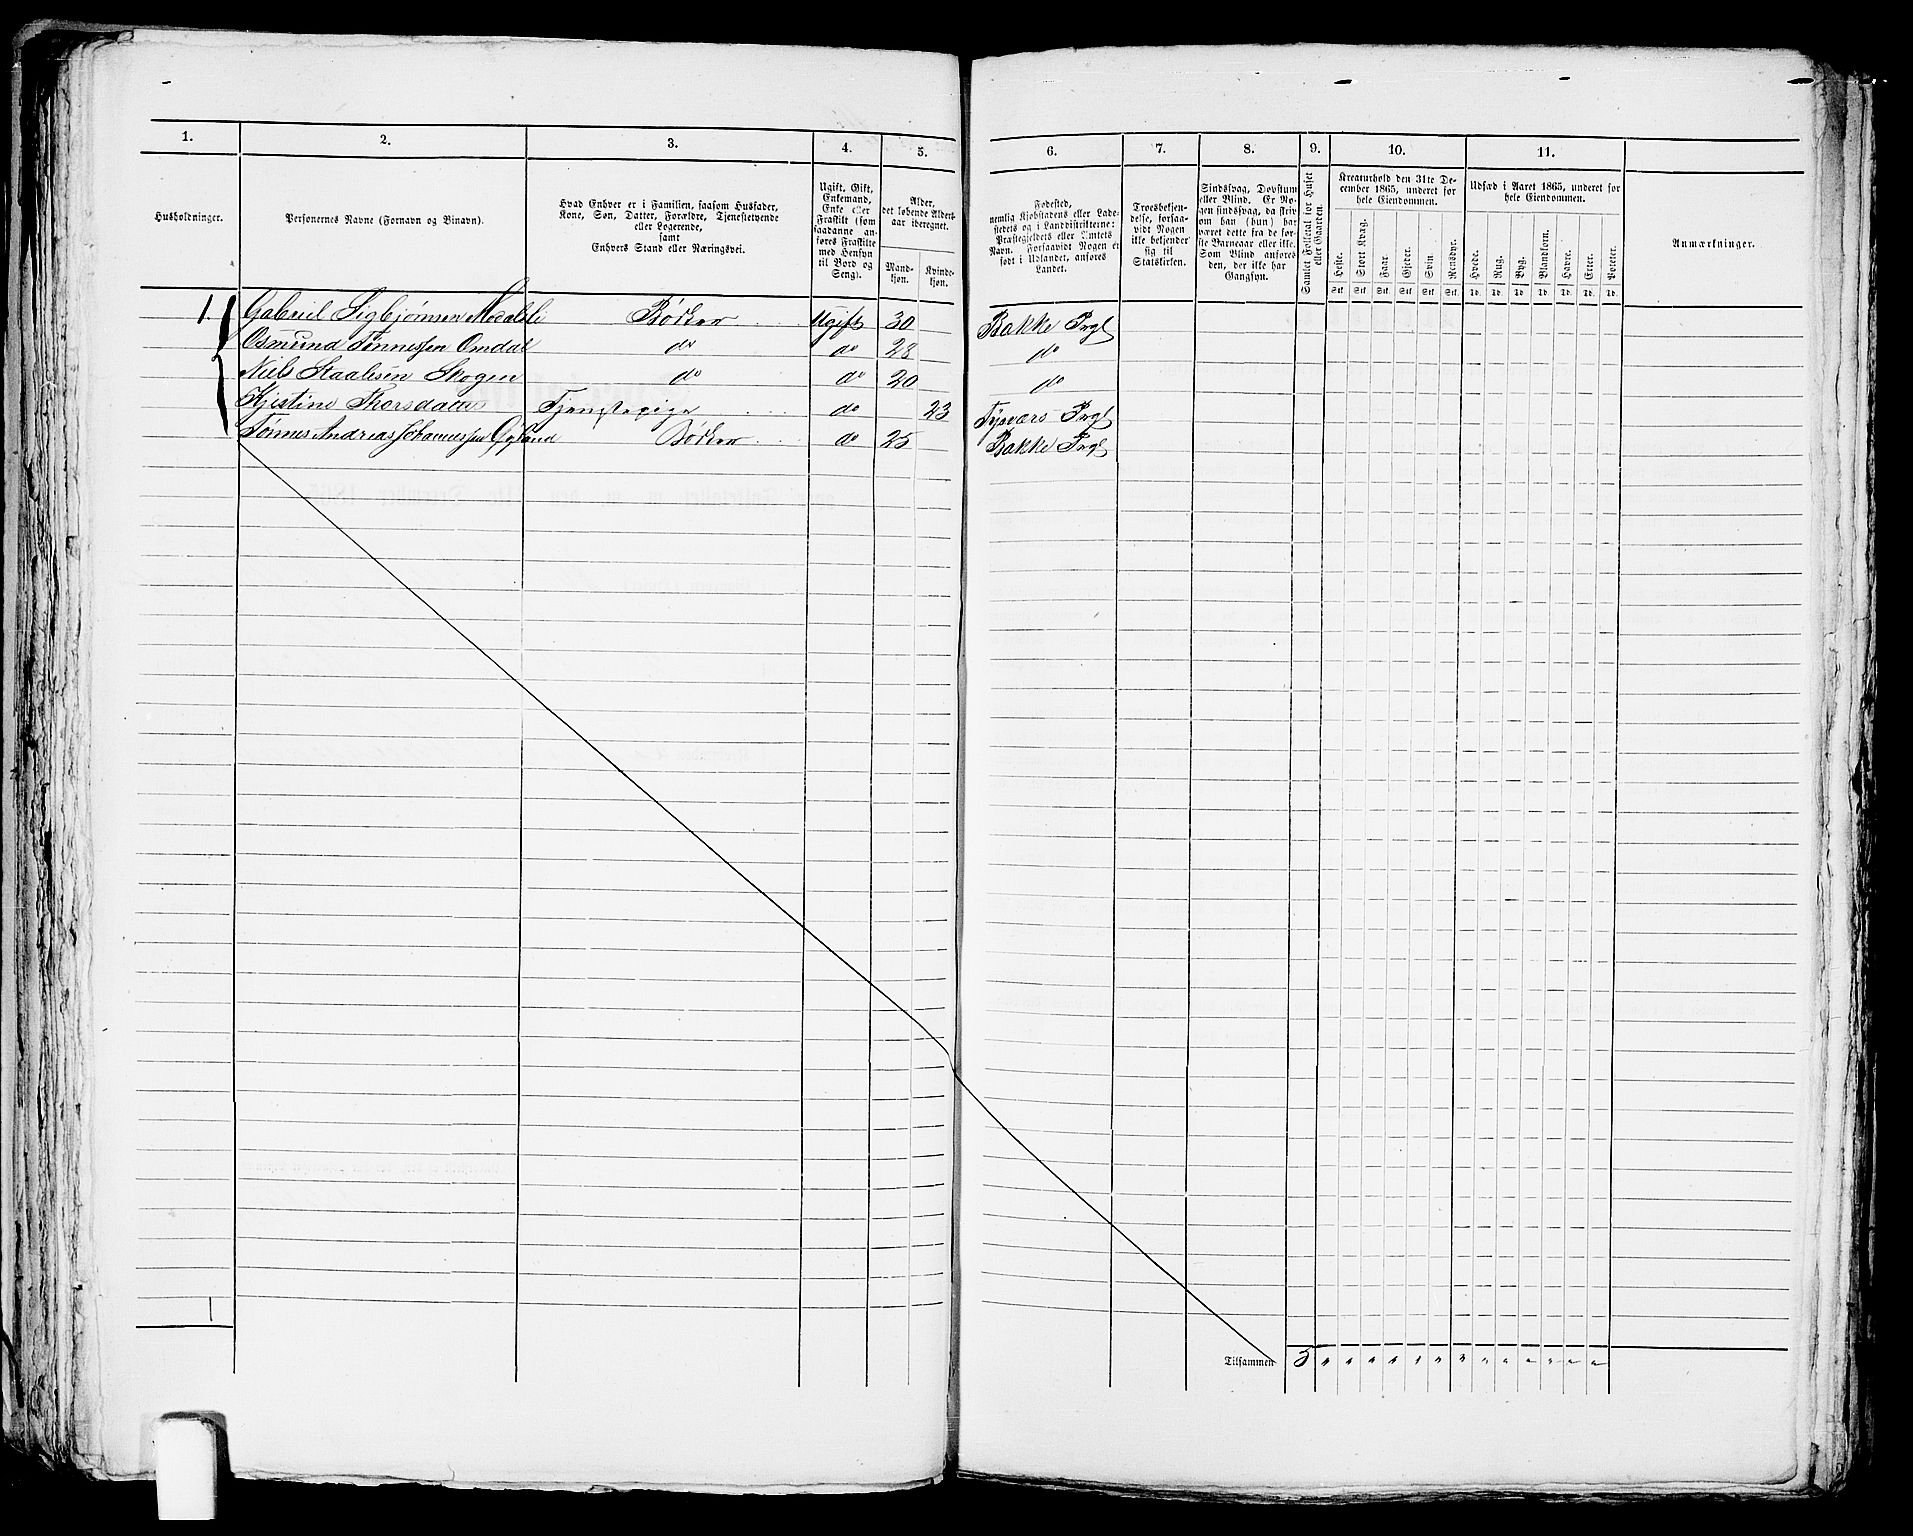 1. 2. 3. 4. 5. 6. 7. 8. 9. 10. 11.
Husholdninger.
Personernes Navne (Fornavn og Binavn).
Hvad Enhver er i Familien, saasom Husfader,
Kone, Søn, Datter, Forældre, Tjenestetyende
eller Logerende,
samt
Enhvers Stand eller Næringsvei.
Ugift, Gift,
Enkemand,
Enke eller
Fraskilt (som
saadanne an-
føres Fraskilte
med Hensyn
til Bord og
Seng).
Alder,
det løbende Alders-
aar iberegnet.
Mand-
kjøn.
Kvinde-
kjøn.
Fødested,
nemlig Kjøbstadens eller Lade-
stedets og i Landdistrikterne:
Præstegjeldets eller Amtets
Navn. Forsaavidt Nogen er
født i Udlandet, anføres
Landet.
Troesbekjen-
delse, forsaa-
vidt Nogen
ikke bekjender
sig til
Statskirken.
Sindssvag, Døvstum
eller Blind. Er No-
gen sindssvag, da skriv
om han (hun) har
været dette fra de før-
ste Barneaar eller ikke.
Som Blind anføres
den, der ikke har
Gangsyn.
Samlet Folketal for Huset
eller Gaarden.
Kreaturhold den 31te De-
cember 1865, underet for
hele Eiendommen.
Heste. Stort Kvæg. Faar. Gjeder. Svin. Rensdyr.
Stk. Stk. Stk. Stk. Stk. Stk.
Udsæd i Aaret 1865, underet for
hele Eiendommen.
Hvede. Rug. Byg. Blandkorn. Havre. Erter. Poteter.
Td. Td. Td. Td. Td. Td. Td.
Anmærkninger.
1. Gabriel Sigbjørnsen Bødker Ugift 30 Bakke Prgl
Osmund Tønnessen Omdal do do 28 do
Niels Staalesen Skogen do do 20 do
Kjistine Thorsdatter Tjenestepige do 23 Tysvær Prgl
Tønnes Andreas Johannessen Bødker do 25 Bakke Prgl
1
Tilsammen 5 " " " " " " " " " " " " "